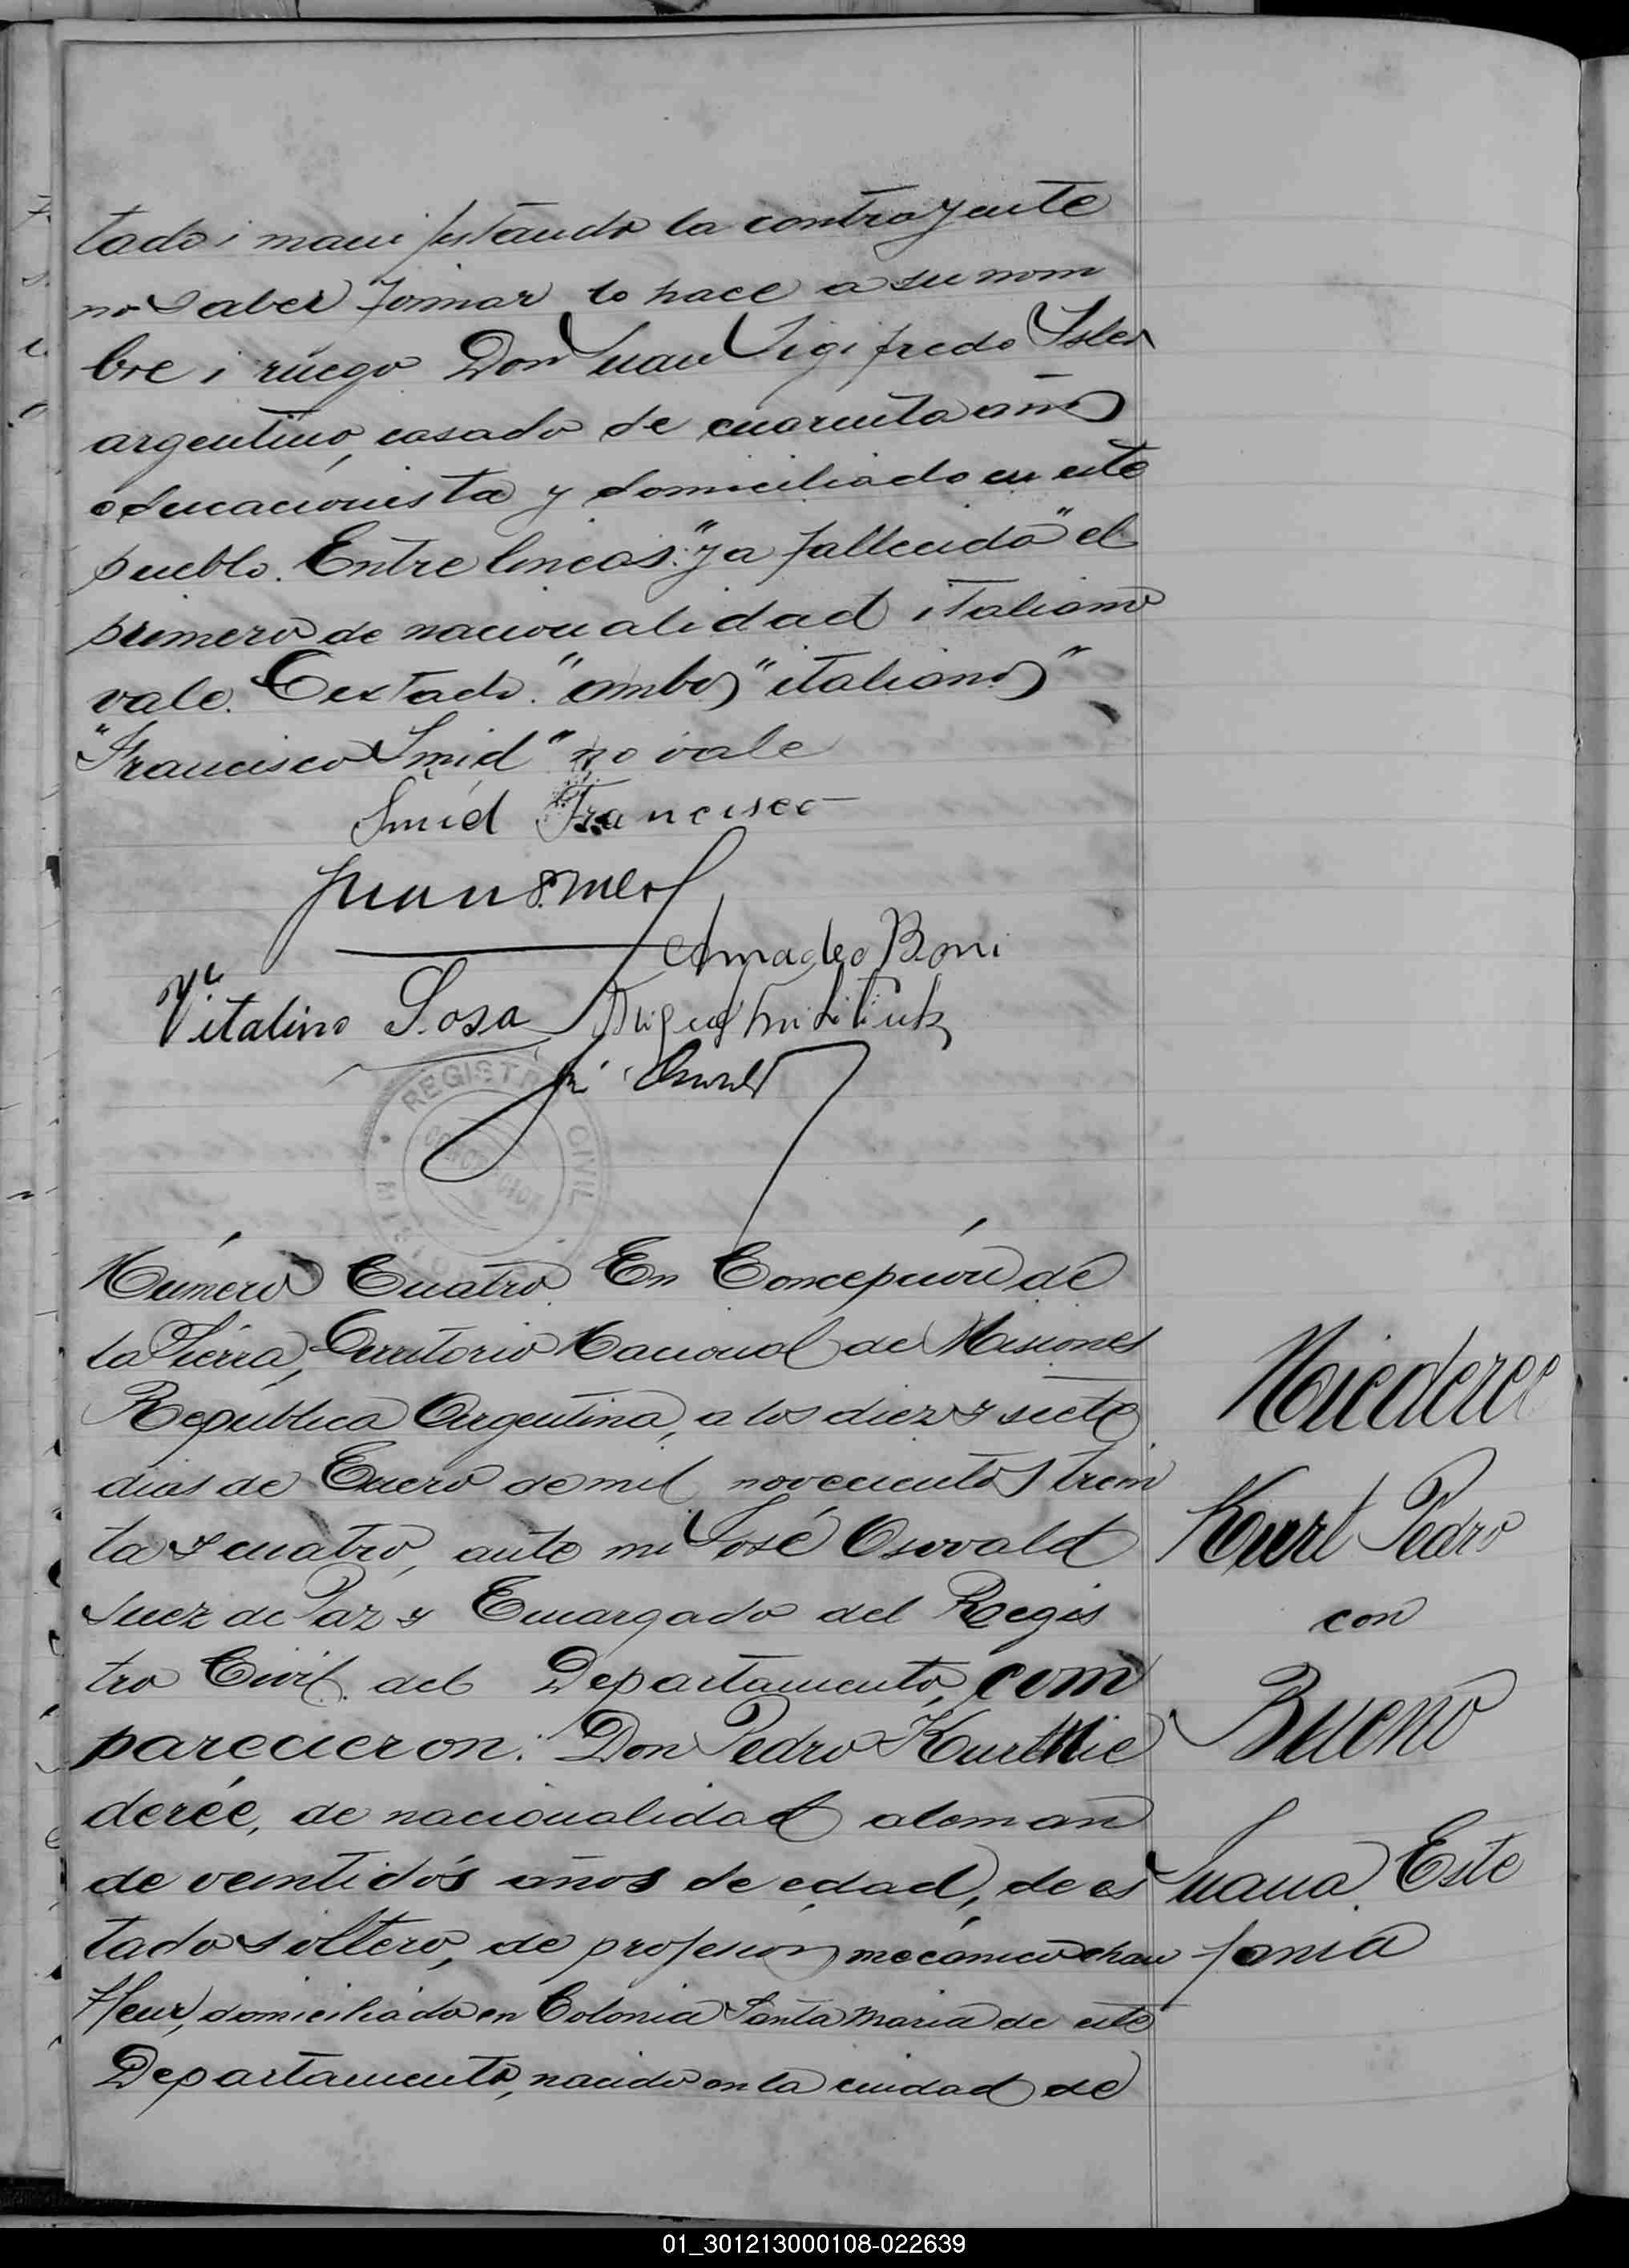 tado i manifestando la contrayente
no saber firmar lo hace a su nom
bre i ruego Don Juan Sigifredo Isler
argentino, casado de cuarenta años
educacionista y domiciliado en este
pueblo. Entre lineas: "ya fallecido" el
primero de nacionalidad italiano
vale. Testado. "ambos" "italianos"
"Francisco Smid" no vale
Smid Francisco
Juan S.
Amadeo Boni
Vitalino Sosa
Miguel
REGISTRO CIVIL
CONCEPCION
MISIONES
Número Cuatro En Concepción de
la Sierra, Territorio Nacional de Misiones
República Argentina, a los diez y siete
dias de Enero de mil novecientos trein
ta y cuatro, ante mi José Oswald
Juez de Paz y Encargado del Regis
tro Civil del Departamento, com
parecieron: Don Pedro Kurt Nie
derée, de nacionalidad aleman
de veintidós años de edad, de es
tado soltero, de profesion mecánico chau
ffeur, domiciliado en Colonia Santa Maria de este
Departamento, nacido en la ciudad de
Niederee
Kurt Pedro
con
Bueno
Juana Este
fania
01_301213000108-022639